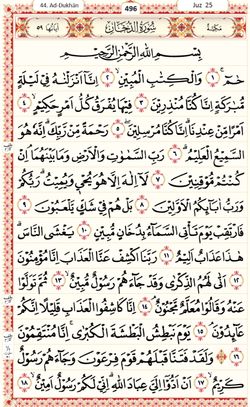 44. Ad-Dukhân 496 Juz 25
مَكِّيَّة سُوْرَةُ الدُّخَانِ اٰيَاتُهَا ٥٩
بِسْمِ اللّٰهِ الرَّحْمٰنِ الرَّحِيْمِ
حٰمٓ ۝١ وَالْكِتٰبِ الْمُبِيْنِ ۝٢ اِنَّآ اَنْزَلْنٰهُ فِيْ لَيْلَةٍ
مُّبٰرَكَةٍ اِنَّا كُنَّا مُنْذِرِيْنَ ۝٣ فِيْهَا يُفْرَقُ كُلُّ اَمْرٍ حَكِيْمٍ ۝٤
اَمْرًا مِّنْ عِنْدِنَا ۚ اِنَّا كُنَّا مُرْسِلِيْنَ ۝٥ رَحْمَةً مِّنْ رَّبِّكَ ۚ اِنَّهٗ هُوَ
السَّمِيْعُ الْعَلِيْمُ ۝٦ رَبِّ السَّمٰوٰتِ وَالْاَرْضِ وَمَا بَيْنَهُمَا ۘ اِنْ
كُنْتُمْ مُّوْقِنِيْنَ ۝٧ لَآ اِلٰهَ اِلَّا هُوَ يُحْيٖ وَيُمِيْتُ ۚ رَبُّكُمْ
وَرَبُّ اٰبَآئِكُمُ الْاَوَّلِيْنَ ۝٨ بَلْ هُمْ فِيْ شَكٍّ يَّلْعَبُوْنَ ۝٩
فَارْتَقِبْ يَوْمَ تَاْتِى السَّمَآءُ بِدُخَانٍ مُّبِيْنٍ ۝١٠ يَغْشَى النَّاسَ ؕ
هٰذَا عَذَابٌ اَلِيْمٌ ۝١١ رَبَّنَا اكْشِفْ عَنَّا الْعَذَابَ اِنَّا مُؤْمِنُوْنَ
۝١٢ اَنّٰى لَهُمُ الذِّكْرٰى وَقَدْ جَآءَهُمْ رَسُوْلٌ مُّبِيْنٌ ۝١٣ ثُمَّ تَوَلَّوْا
عَنْهُ وَقَالُوْا مُعَلَّمٌ مَّجْنُوْنٌ ۝١٤ اِنَّا كَاشِفُوا الْعَذَابِ قَلِيْلًا اِنَّكُمْ
عَآئِدُوْنَ ۝١٥ يَوْمَ نَبْطِشُ الْبَطْشَةَ الْكُبْرٰى ۚ اِنَّا مُنْتَقِمُوْنَ
۝١٦ وَلَقَدْ فَتَنَّا قَبْلَهُمْ قَوْمَ فِرْعَوْنَ وَجَآءَهُمْ رَسُوْلٌ
كَرِيْمٌ ۝١٧ اَنْ اَدُّوْٓا اِلَيَّ عِبَادَ اللّٰهِ ؕ اِنِّيْ لَكُمْ رَسُوْلٌ اَمِيْنٌ ۝١٨